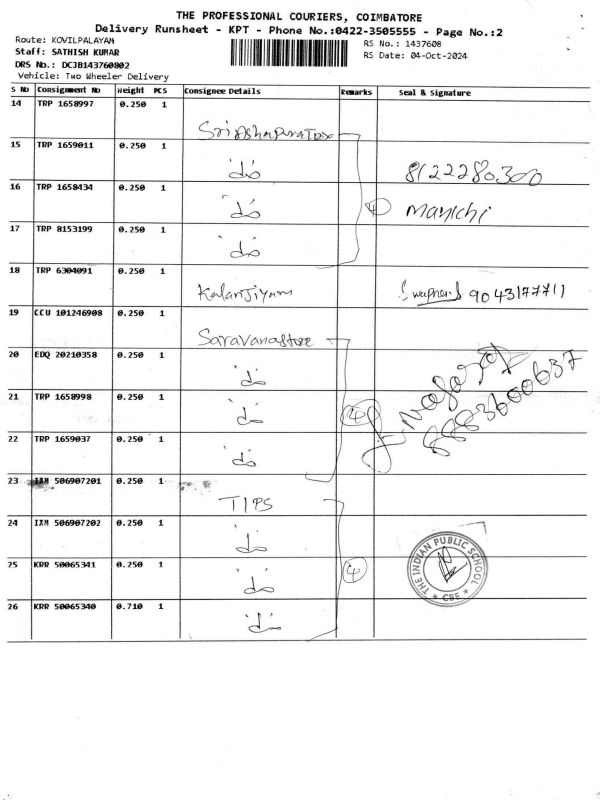 THE PROFESSIONAL COURIERS, COIMBATORE
Delivery Runsheet - KPT - Phone No.:0422-3505555 - Page No.:2
Route: KOVILPALAYAM
RS No.: 1437608
Staff: SATHISH KUMAR
RS Date: 04-Oct-2024
DRS No.: DCJB143760802
Vehicle: Two Wheeler Delivery
S No Consignment No Weight PCS Consignee Details Remarks Seal & Signature
14 TRP 1658997 0.250 1
15 TRP 1659011 0.250 1 do
8122280300
16 TRP 1658434 0.250 1 do 4 Manichi
17 TRP 8153199 0.250 1 do
18 TRP 6304091 0.250 1 Kalanjiyam 9043177711
19 CCU 101246908 0.250 1 Saravanastore
20 EDQ 20210358 0.250 1 do
21 TRP 1658998 0.250 1 do 4 8883600637
22 TRP 1659037 0.250 1 do
23 IXM 506907201 0.250 1 TIPS
24 IXM 506907202 0.250 1 do
25 KRR 50065341 0.250 1 do 4 THE INDIAN PUBLIC SCHOOL * CBE *
26 KRR 50065340 0.710 1 do